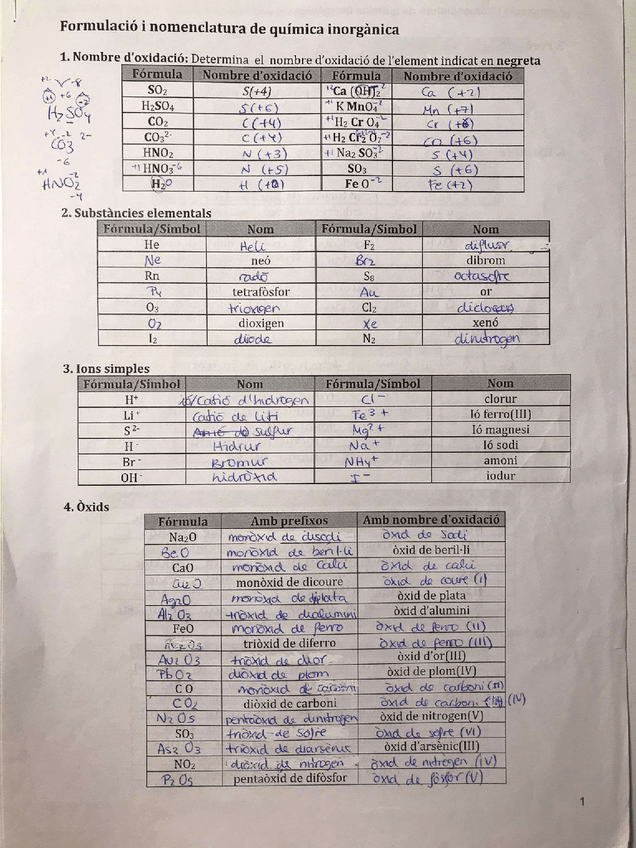 Formulació i nomenclatura de química inorgànica
1. Nombre d'oxidació: Determina el nombre d'oxidació de l'element indicat en negreta
Fórmula Nombre d'oxidació Fórmula Nombre d'oxidació
SO2 S(+4) Ca (OH)2 Ca (+2)
H2SO4 S(+6) K MnO4 Mn (+7)
CO2 C(+4) H2 Cr O4 Cr (+6)
CO3 2- C(+4) H2 Cr2 O7 (+6)
HNO2 N (+3) Na2 SO3 S (+4)
HNO3 N (+5) SO3 S (+6)
H2O H Fe O Fe (+2)
H2SO4
CO3 2-
-6
HNO2
-4
2. Substàncies elementals
Fórmula/Símbol Nom Fórmula/Símbol Nom
He Heli F2 difluor
Ne neó Br2 dibrom
Rn radó S8 octasofre
P4 tetrafòsfor Au or
O3 trioxigen Cl2
O2 dioxigen Xe xenó
I2 diiode N2 dinitrogen
3. Ions simples
Fórmula/Símbol Nom Fórmula/Símbol Nom
H+ ió/Catió d'hidrogen Cl- clorur
Li+ catió de liti Fe3+ Ió ferro(III)
S2- sulfur Mg2+ Ió magnesi
H- Hidrur Na+ Ió sodi
Br- Bromur NH4+ amoni
OH- hidròxid I- iodur
4. Òxids
Fórmula Amb prefixos Amb nombre d'oxidació
Na2O monòxid de disodi òxid de sodi
BeO monòxid de beril·li òxid de beril·li
CaO monòxid de calci òxid de calci
Cu2O monòxid de dicoure òxid de coure (I)
Ag2O monòxid de diplata òxid de plata
Al2O3 triòxid de dialumini òxid d'alumini
FeO monòxid de ferro òxid de ferro (II)
Fe2O3 triòxid de diferro òxid de ferro (III)
Au2O3 triòxid de dior òxid d'or(III)
PbO2 diòxid de plom òxid de plom(IV)
CO monòxid de carboni òxid de carboni (II)
CO2 diòxid de carboni òxid de carboni (IV)
N2O5 pentaòxid de dinitrogen òxid de nitrogen(V)
SO3 triòxid de sofre òxid de sofre (VI)
As2O3 triòxid de diarsènic òxid d'arsènic(III)
NO2 diòxid de nitrogen òxid de nitrogen (IV)
P2O5 pentaòxid de difòsfor òxid de fòsfor (V)
1